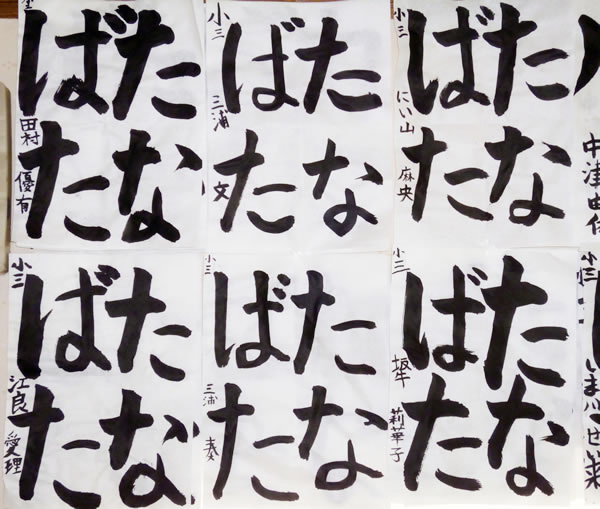 たな
ばた
田村 優有
たな
ばた
小三 三浦 文
たな
ばた
小三 にい山 麻央
中津由
たな
ばた
小三 江良 愛理
たな
ばた
小三 三浦 奏
たな
ばた
小二 坂牛 莉華子
小三 いま川